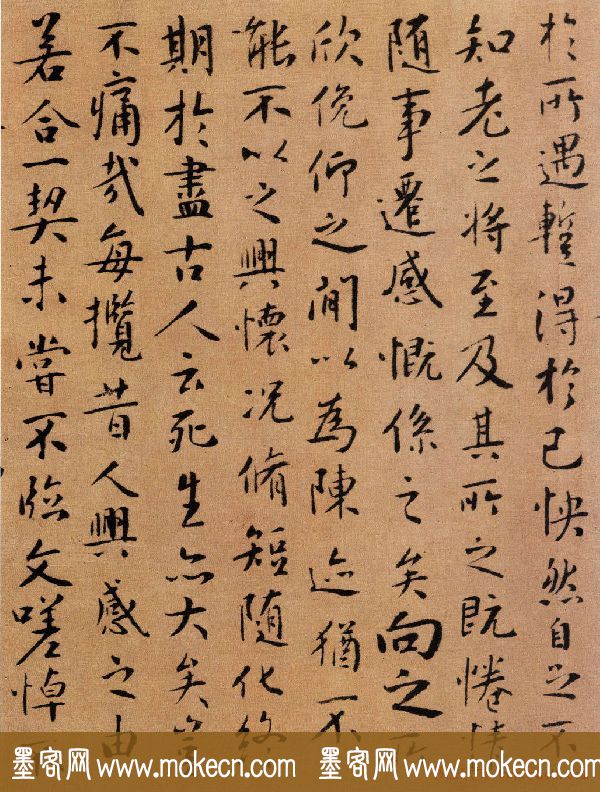 於所遇暫得於己快然自足不
知老之將至及其所之既惓情
隨事遷感慨係之矣向之所
欣俛仰之閒以為陳迹猶不
能不以之興懷況脩短隨化終
期於盡古人云死生亦大矣豈
不痛哉每攬昔人興感之由
若合一契未嘗不臨文嗟悼不
墨客网 www.mokecn.com 墨客网 www.mokecn.com